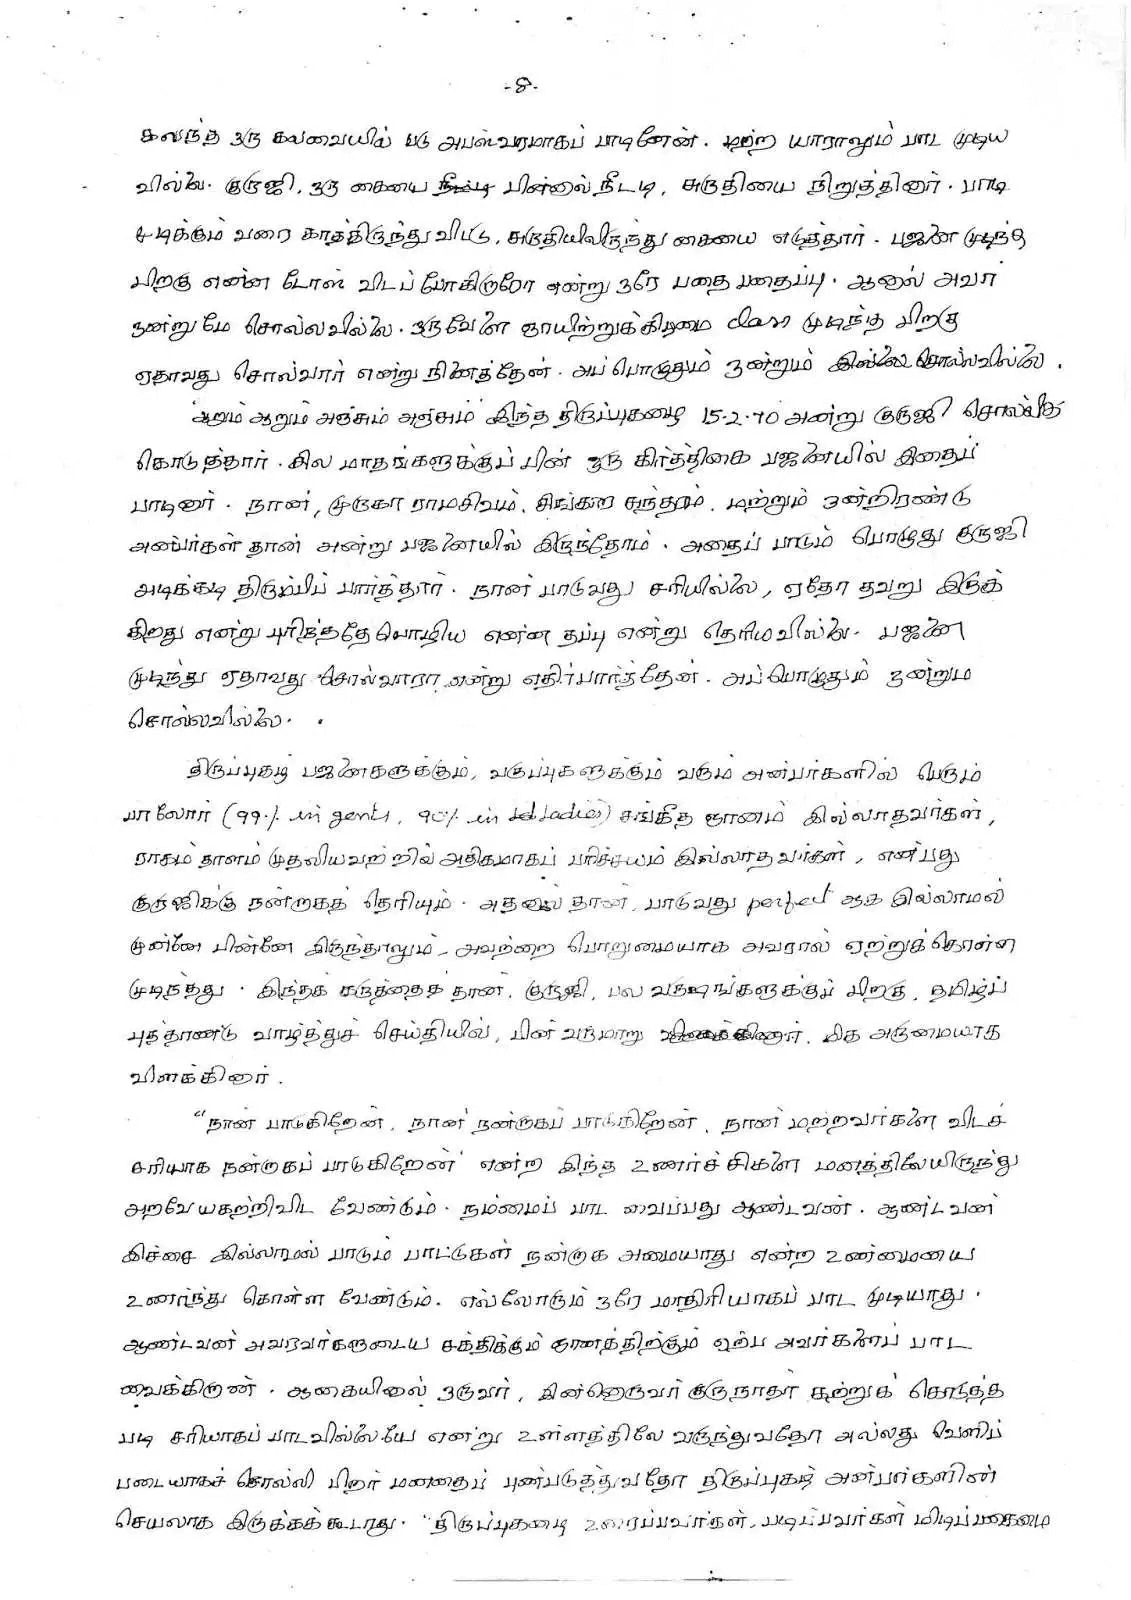 -8-
கலந்த ஒரு கலவையில் படு அபஸ்வரமாகப் பாடினேன். மற்ற யாராலும் பாட முடிய
வில்லை. குருஜி, ஒரு கையை பின்னால் நீட்டி, சுருதியை நிறுத்தினார். பாடி
முடிக்கும் வரை காத்திருந்து விட்டு, சுருதியிலிருந்து கையை எடுத்தார். பஜனை முடிந்த
பிறகு என்ன டோஸ் விடப் போகிறாரோ என்று ஒரே பதை பதைப்பு. ஆனால் அவர்
ஒன்றுமே சொல்லவில்லை. ஒருவேளை ஞாயிற்றுக்கிழமை class முடிந்த பிறகு
ஏதாவது சொல்வார் என்று நினைத்தேன். அப்பொழுதும் ஒன்றும் சொல்லவில்லை.
ஆறும் ஆறும் அஞ்சும் அஞ்சும் இந்த திருப்புகழை 15-2-70 அன்று குருஜி சொல்லிக்
கொடுத்தார். சில மாதங்களுக்குப் பின் ஒரு கிர்த்திகை பஜனையில் இதைப்
பாடினார். நான், முருகா ராமசிவம், சிங்கார சுந்தரம், மற்றும் ஒன்றிரண்டு
அன்பர்கள் தான் அன்று பஜனையில் இருந்தோம். அதைப் பாடும் பொழுது குருஜி
அடிக்கடி திரும்பிப் பார்த்தார். நான் பாடுவது சரியில்லை, ஏதோ தவறு இருக்
கிறது என்று புரிந்ததே யொழிய என்ன தப்பு என்று தெரியவில்லை. பஜனை
முடிந்து ஏதாவது சொல்வாரா என்று எதிர்பார்த்தேன். அப்பொழுதும் ஒன்றும்
சொல்லவில்லை.
திருப்புகழ் பஜனைகளுக்கும், வகுப்புகளுக்கும் வரும் அன்பர்களில் பெரும்
பாலோர் (99% in gents, 90% in ladies) சங்கீத ஞானம் இல்லாதவர்கள்,
ராகம் தாளம் முதலியவற்றில் அதிகமாகப் பரிச்சயம் இல்லாதவர்கள், என்பது
குருஜிக்கு நன்றாகத் தெரியும். அதனால் தான், பாடுவது perfect ஆக இல்லாமல்
முன்னே பின்னே இருந்தாலும், அவற்றை பொறுமையாக அவரால் ஏற்றுக்கொள்ள
முடிந்தது. இந்தக் கருத்தைத் தான், குருஜி, பல வருஷங்களுக்குப் பிறகு, தமிழ்ப்
புத்தாண்டு வாழ்த்துச் செய்தியில், பின் வருமாறு மிக அருமையாக
விளக்கினார்.
"நான் பாடுகிறேன், நான் நன்றாகப் பாடுகிறேன், நான் மற்றவர்களை விடச்
சரியாக நன்றாகப் பாடுகிறேன்' என்ற இந்த உணர்ச்சிகளை மனத்திலேயிருந்து
அறவேயகற்றிவிட வேண்டும். நம்மைப் பாட வைப்பது ஆண்டவன். ஆண்டவன்
இச்சை இல்லாமல் பாடும் பாட்டுகள் நன்றாக அமையாது என்ற உண்மையை
உணர்ந்து கொள்ள வேண்டும். எல்லோரும் ஒரே மாதிரியாகப் பாட முடியாது.
ஆண்டவன் அவரவர்களுடைய சக்திக்கும் ஞானத்திற்கும் ஏற்ப அவர்களைப் பாட
வைக்கிறான். ஆகையினால் ஒருவர், இன்னொருவர் குருநாதர் கற்றுக் கொடுத்த
படி சரியாகப் பாடவில்லையே என்று உள்ளத்திலே வருந்துவதோ அல்லது வெளிப்
படையாகச் சொல்லி பிறர் மனதைப் புண்படுத்துவதோ திருப்புகழ் அன்பர்களின்
செயலாக இருக்கக் கூடாது. "திருப்புகழை உரைப்பவர்கள், படிப்பவர்கள் மிடிப்பகைமை